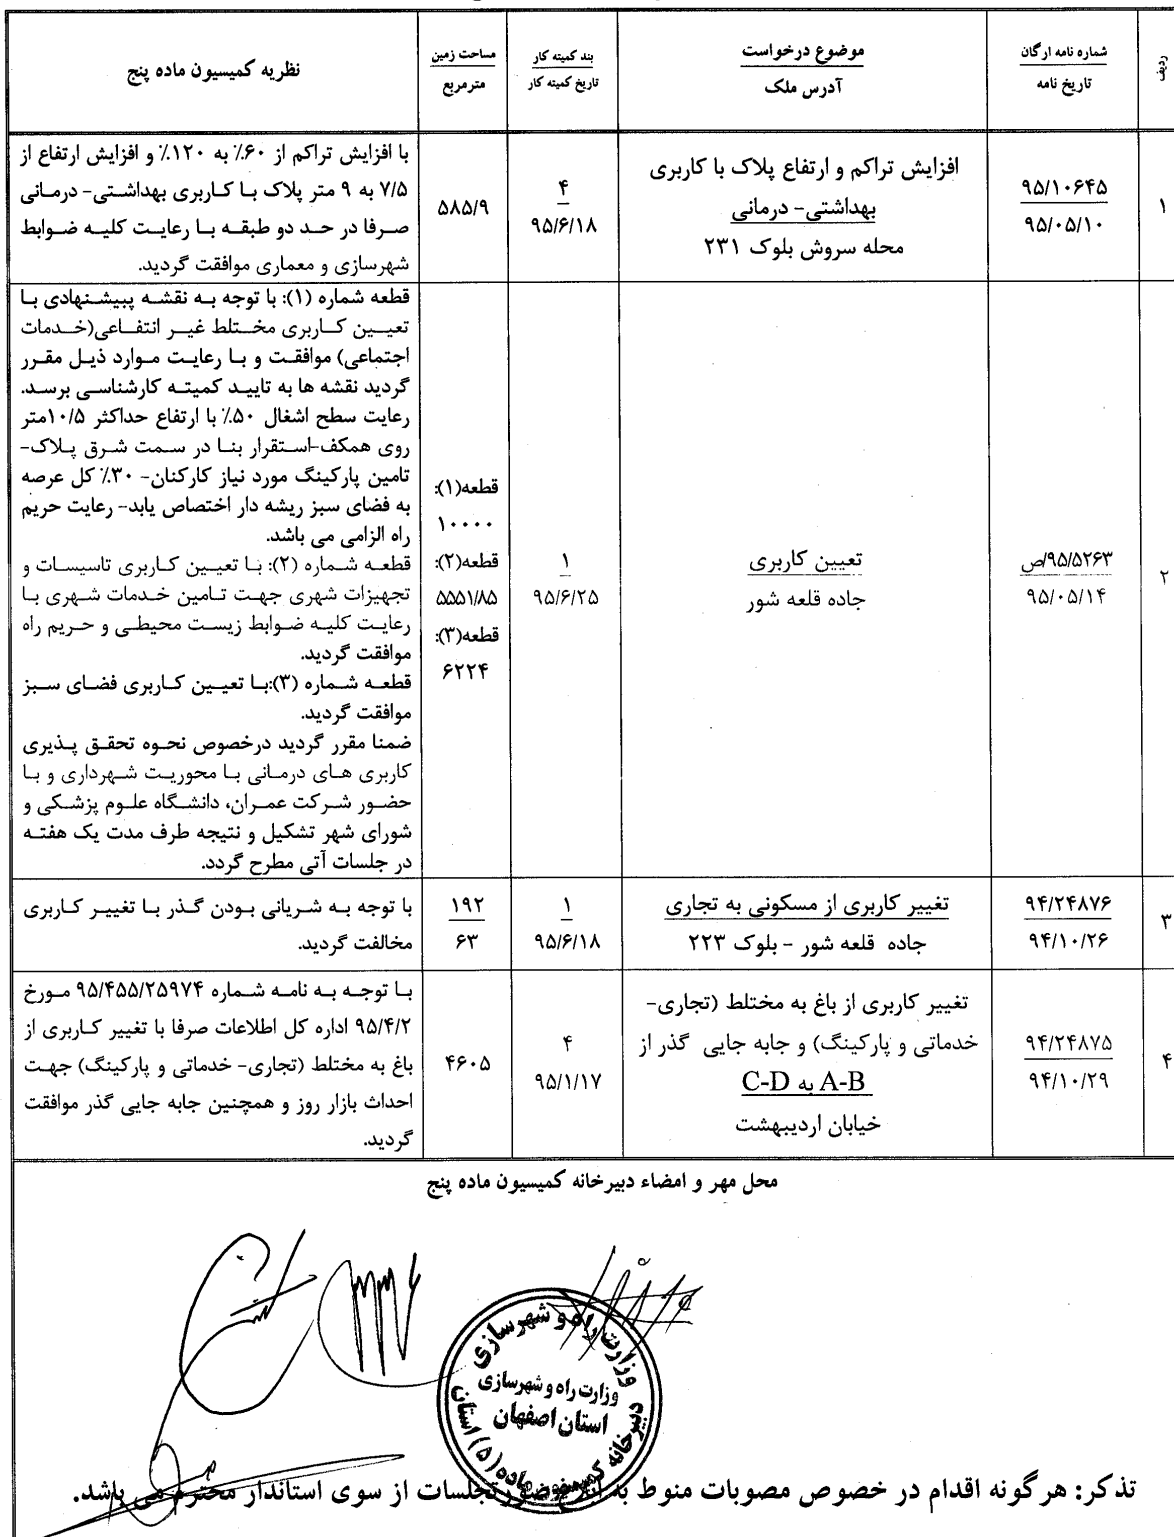 ردیف
شماره نامه ارگان
تاریخ نامه
موضوع درخواست
آدرس ملک
بند کمیته کار
تاریخ کمیته کار
مساحت زمین
مترمربع
نظریه کمیسیون ماده پنج
۱
۹۵/۱۰۶۴۵
۹۵/۰۵/۱۰
افزایش تراکم و ارتفاع پلاک با کاربری
بهداشتی- درمانی
محله سروش بلوک ۲۳۱
۴
۹۵/۶/۱۸
۵۸۵/۹
با افزایش تراکم از ۶۰٪ به ۱۲۰٪ و افزایش ارتفاع از
۷/۵ به ۹ متر پلاک با کاربری بهداشتی- درمانی
صرفا در حد دو طبقه با رعایت کلیه ضوابط
شهرسازی و معماری موافقت گردید.
۲
۹۵/۵۲۶۳/ص
۹۵/۰۵/۱۴
تعیین کاربری
جاده قلعه شور
۱
۹۵/۶/۲۵
قطعه(۱):
۱۰۰۰۰
قطعه(۲):
۵۵۵۱/۸۵
قطعه(۳):
۶۲۲۴
قطعه شماره (۱): با توجه به نقشه پیشنهادی با
تعیین کاربری مختلط غیر انتفاعی(خدمات
اجتماعی) موافقت و با رعایت موارد ذیل مقرر
گردید نقشه ها به تایید کمیته کارشناسی برسد.
رعایت سطح اشغال ۵۰٪ با ارتفاع حداکثر ۱۰/۵متر
روی همکف-استقرار بنا در سمت شرق پلاک-
تامین پارکینگ مورد نیاز کارکنان- ۳۰٪ کل عرصه
به فضای سبز ریشه دار اختصاص یابد- رعایت حریم
راه الزامی می باشد.
قطعه شماره (۲): با تعیین کاربری تاسیسات و
تجهیزات شهری جهت تامین خدمات شهری با
رعایت کلیه ضوابط زیست محیطی و حریم راه
موافقت گردید.
قطعه شماره (۳):با تعیین کاربری فضای سبز
موافقت گردید.
ضمنا مقرر گردید درخصوص نحوه تحقق پذیری
کاربری های درمانی با محوریت شهرداری و با
حضور شرکت عمران، دانشگاه علوم پزشکی و
شورای شهر تشکیل و نتیجه ظرف مدت یک هفته
در جلسات آتی مطرح گردد.
۳
۹۴/۲۴۸۷۶
۹۴/۱۰/۲۶
تغییر کاربری از مسکونی به تجاری
جاده قلعه شور - بلوک ۲۲۳
۱
۹۵/۶/۱۸
۱۹۲
۶۳
با توجه به شریانی بودن گذر با تغییر کاربری
مخالفت گردید.
۴
۹۴/۲۴۸۷۵
۹۴/۱۰/۲۹
تغییر کاربری از باغ به مختلط (تجاری-
خدماتی و پارکینگ) و جابه جایی گذر از
A-B به C-D
خیابان اردیبهشت
۴
۹۵/۱/۱۷
۴۶۰۵
با توجه به نامه شماره ۹۵/۴۵۵/۲۵۹۷۴ مورخ
۹۵/۴/۲ اداره کل اطلاعات صرفا با تغییر کاربری از
باغ به مختلط (تجاری- خدماتی و پارکینگ) جهت
احداث بازار روز و همچنین جابه جایی گذر موافقت
گردید.
محل مهر و امضاء دبیرخانه کمیسیون ماده پنج
وزارت راه و شهرسازی
وزارت راه و شهرسازی
استان اصفهان
دبیرخانه کمیسیون ماده (۵) استان
تذکر: هرگونه اقدام در خصوص مصوبات منوط به ابلاغ صورتجلسات از سوی استاندار محترم می باشد.